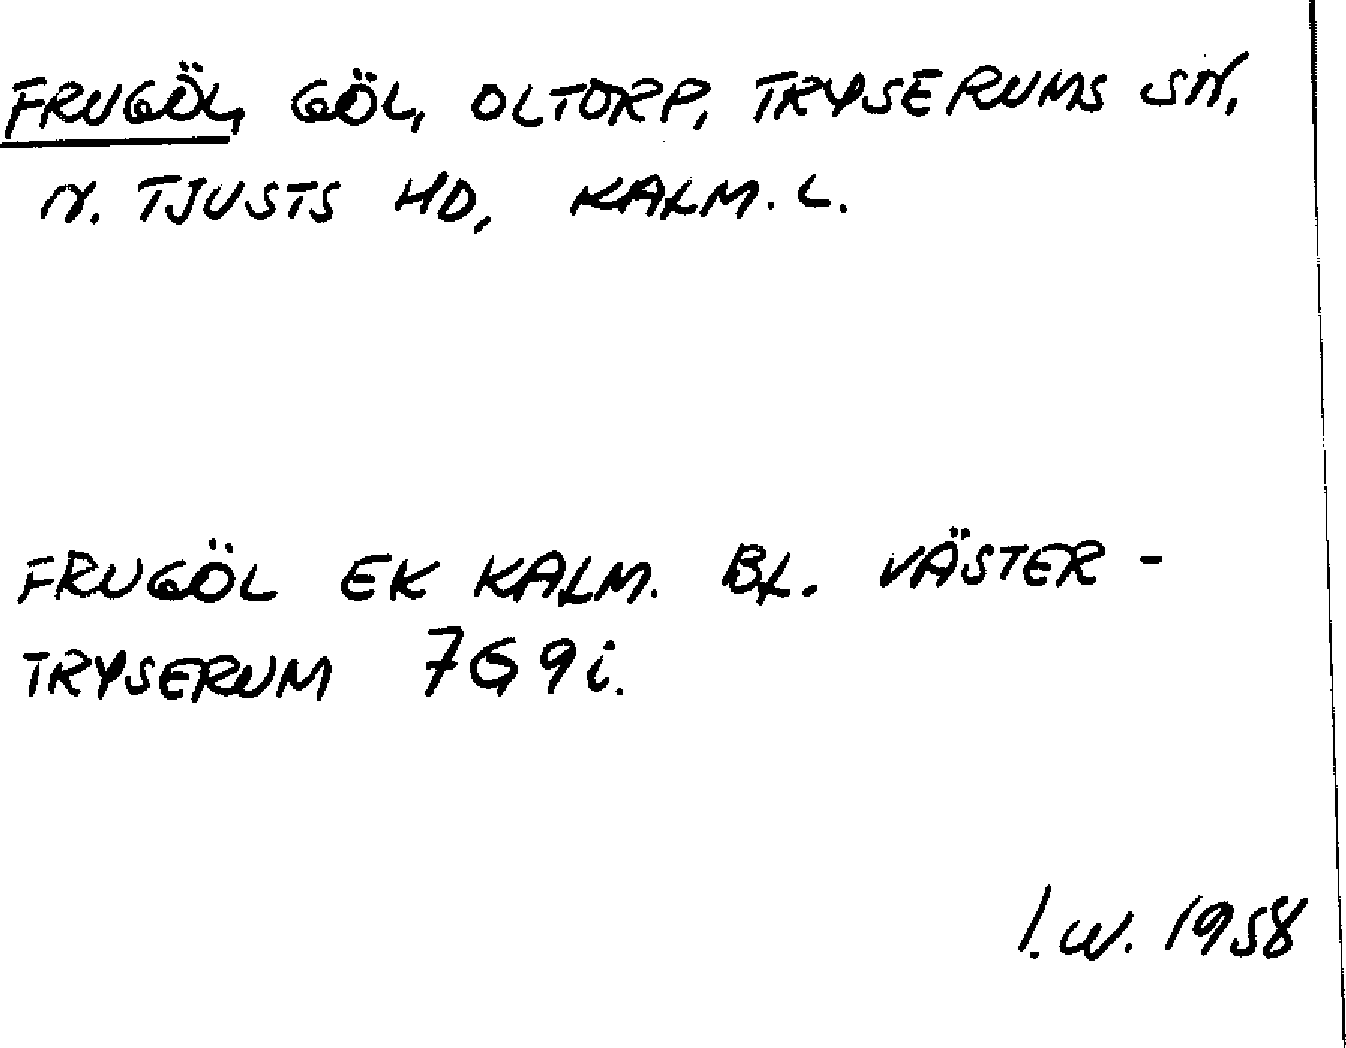 FRUGÖL, GÖL, OLTORP, TRYSERUMS SN,
N. TJUSTS HD, KALM. L.
FRUGÖL EK KALM. BL. VÄSTER-
TRYSERUM 7G9i.
I.W. 1958